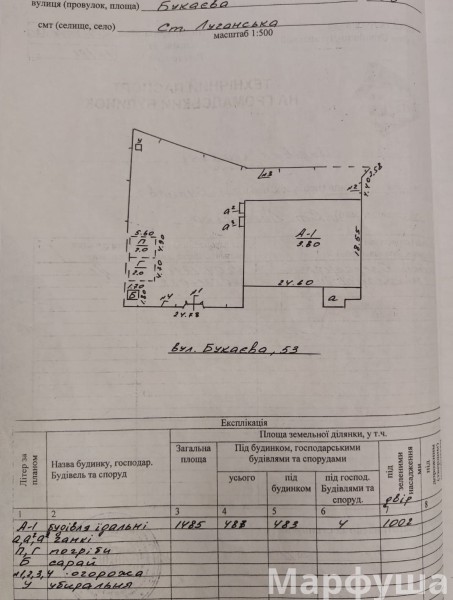 вулиця (провулок, площа) Букаєва
смт (селище, село) Ст. Луганська
масштаб 1:500
У
а²
а³
А-1
3.80
18.65
24.60
а
5.60
П
2.0
Г
2.0
Б
24.73
вул. Букаєва, 53
Експлікація
Літер за планом
Назва будинку, господар. Будівель та споруд
Площа земельної ділянки, у т.ч.
Загальна площа
Під будинком, господарськими будівлями та спорудами
усього
під будинком
під господ. Будівлями та Споруд.
під зеленими насадження ми
двір
1 2 3 4 5 6 7 8
А-1 будівля їдальні 1485 483 483 4 1002
а,а²,а³ ганкі
П, Г погріби
Б сарай
№1,2,3,4 огорожа
У убиральня
Марфуша